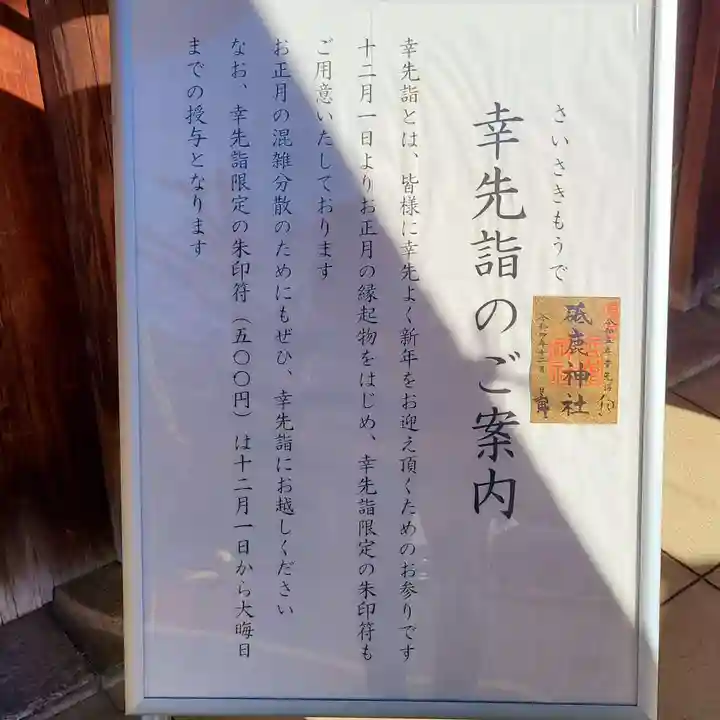 さいさきもうで
幸先詣のご案内
砥鹿神社
幸先詣とは、皆様に幸先よく新年をお迎え頂くためのお参りです
十二月一日よりお正月の縁起物をはじめ、幸先詣限定の朱印符も
ご用意いたしております
お正月の混雑分散のためにもぜひ、幸先詣にお越しください
なお、幸先詣限定の朱印符（五〇〇円）は十二月一日から大晦日
までの授与となります